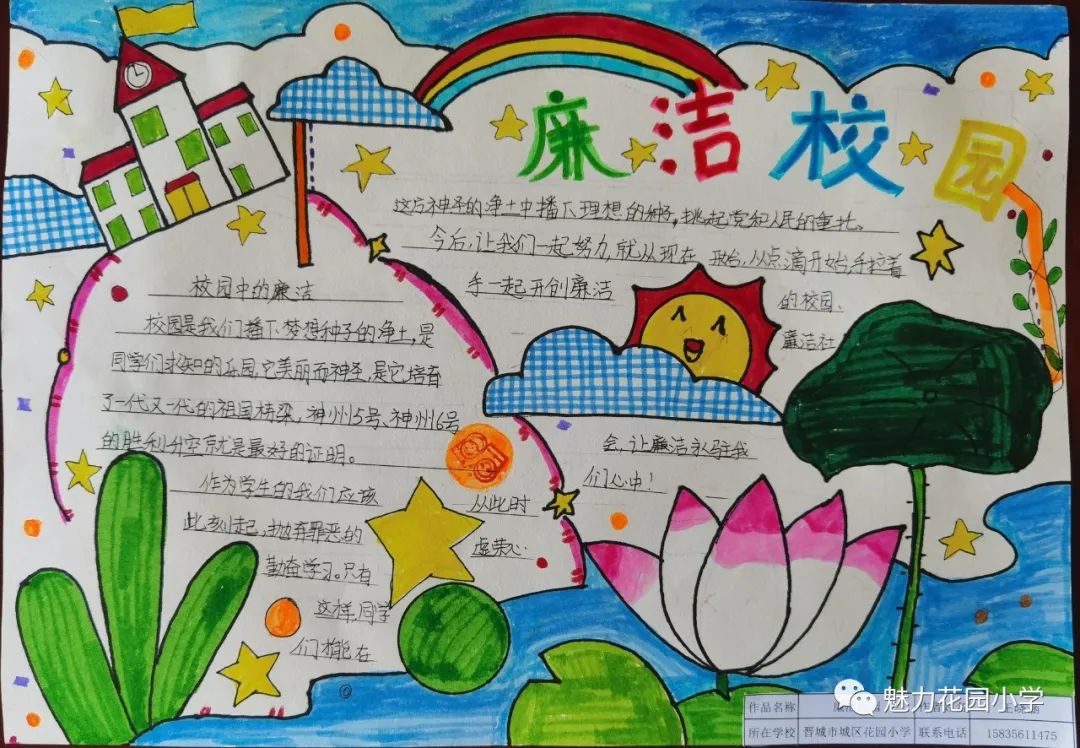 廉洁校园
校园中的廉洁
校园是我们播下梦想种子的净土,是
同学们求知的乐园,它美丽而神圣,是它培育
了一代又一代的祖国栋梁,神州5号、神州6号
的胜利升空京就是最好的证明。
作为学生的我们应该
从此时
此刻起,抛弃罪恶的
虚荣心.
勤奋学习。只有
这样,同学
们才能在
这片神圣的净土中播下理想的种子,挑起党和人民的重托。
今后,让我们一起努力,就从现在开始,从点滴开始,手拉着
手一起开创廉洁
的校园、
廉洁社
会,让廉洁永驻我
们心中!
魅力花园小学
作品名称
所在学校 晋城市城区花园小学 联系电话 15835611475